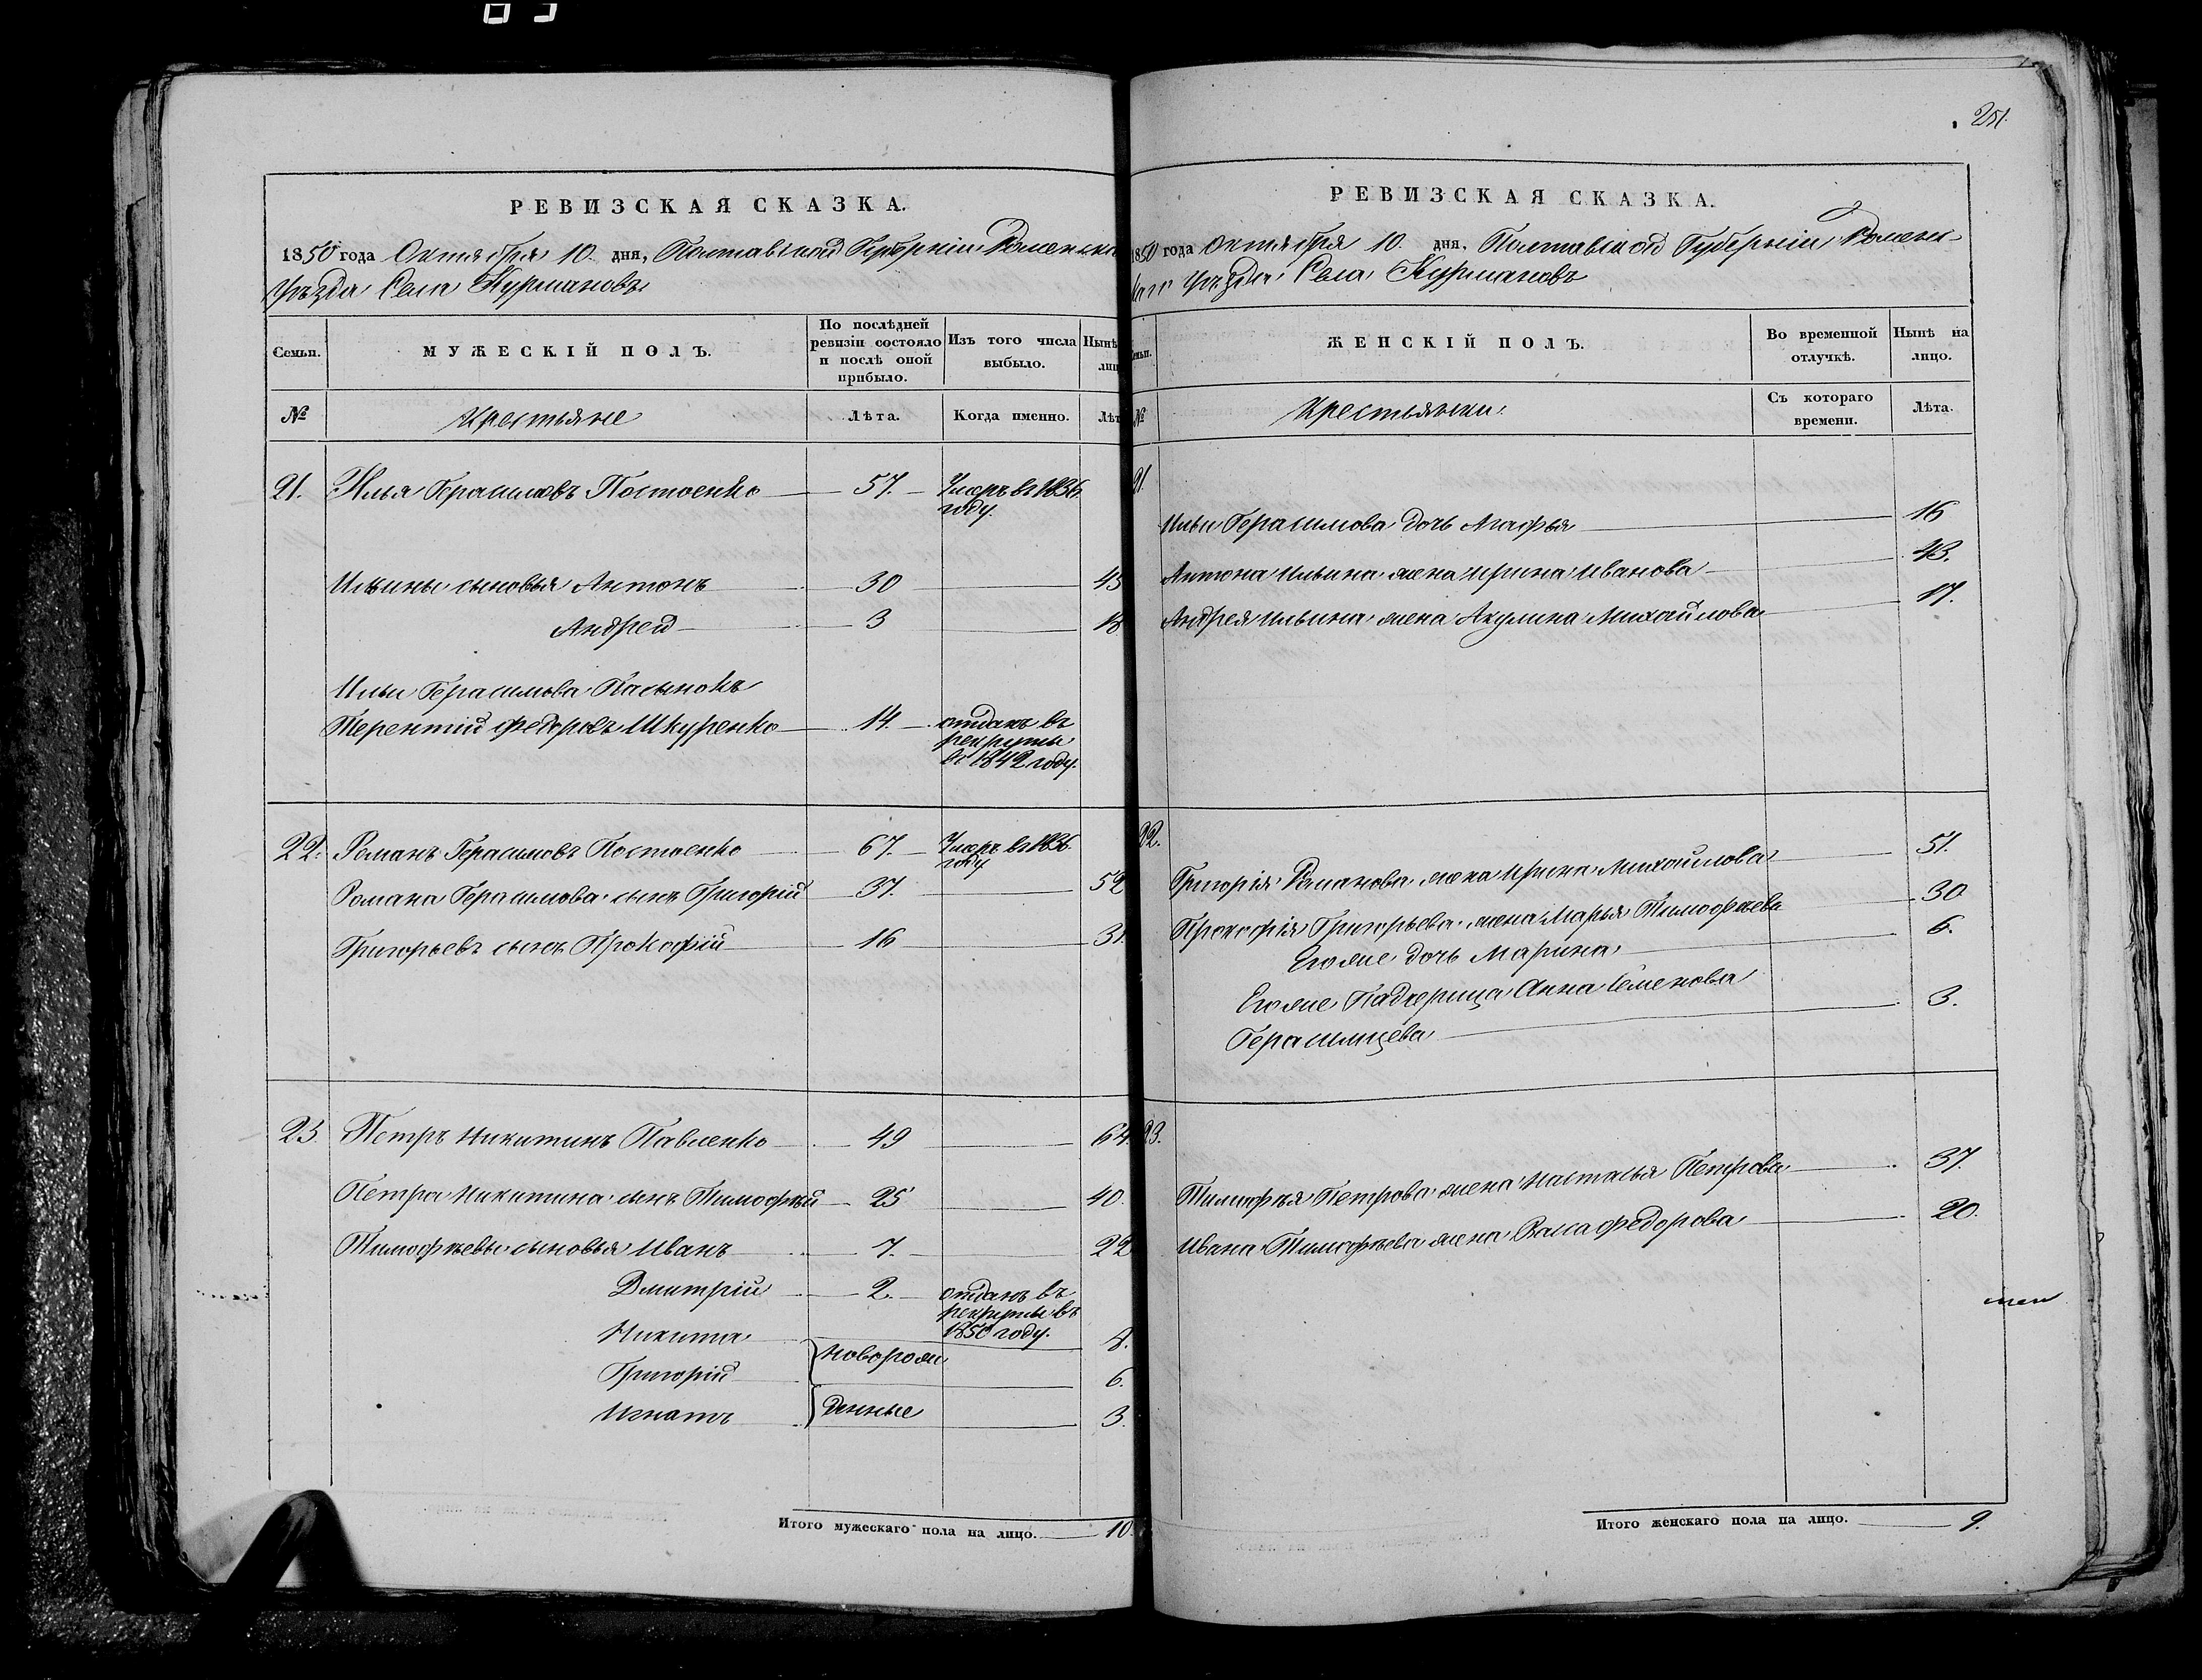 251.
РЕВИЗСКАЯ СКАЗКА.
1850 года Октября 10 дня, Полтавской Губерніи Роменска
Уѣзда Села Курмановъ
Семьи.
МУЖЕСКІЙ ПОЛЪ.
По послѣдней ревизіи состояло и послѣ оной прибыло.
Изъ того числа выбыло.
Нынѣ
лиц
№
Крестьяне
Лѣта.
Когда именно.
Лѣт
21. Илья Герасимовъ Постоенко 57. Умеръ въ 1836.
году.
Ильины сыновья Антонъ 30 45
Андрей 3 18
Ильи Герасимова Пасынокъ
Терентій Федоровъ Шкуренко 14. отданъ въ
рекруты
въ 1842 году.
22. Романъ Герасимовъ Постоенко 67. Умеръ въ 1836.
году
Романа Герасимова сынъ Григорій 37. 52
Григорьевъ сынъ Прокофій 16 31.
23 Петръ Никитинъ Павленко 49 64.
Петра Никитина сынъ Тимофѣй 25 40.
Тимофѣевы сыновья Иванъ 7. 22
Дмитрій 2. отданъ въ
рекруты въ
1850 году.
Никита новорож 8.
Григорій 6.
Игнатъ денные 3.
Итого мужескаго пола на лицо. 10.
РЕВИЗСКАЯ СКАЗКА.
1850 года Октября 10. дня, Полтавской Губерніи Роменс-
каго Уѣзда Села Курмановъ
емьи.
ЖЕНСКІЙ ПОЛЪ.
Во временной отлучкѣ.
Нынѣ на лицо.
№
Крестьянки.
Съ котораго времени.
Лѣта.
21.
Ильи Герасимова дочь Агафья 16
Антона Ильина жена Ирина Иванова 43.
Андрея Ильина жена Акулина Михайлова 17.
22.
Григорія Романова жена Ирина Михайлова 51.
Прокофія Григорьева жена Марья Тимофѣева 30
Егоже дочь Марина 6.
Егоже Падчерица Анна Семенова
Герасимцева 3.
23.
Тимофѣя Петрова жена Настасья Петрова 37.
Ивана Тимофѣева жена Федорова 20.
Итого женскаго пола на лицо. 9.